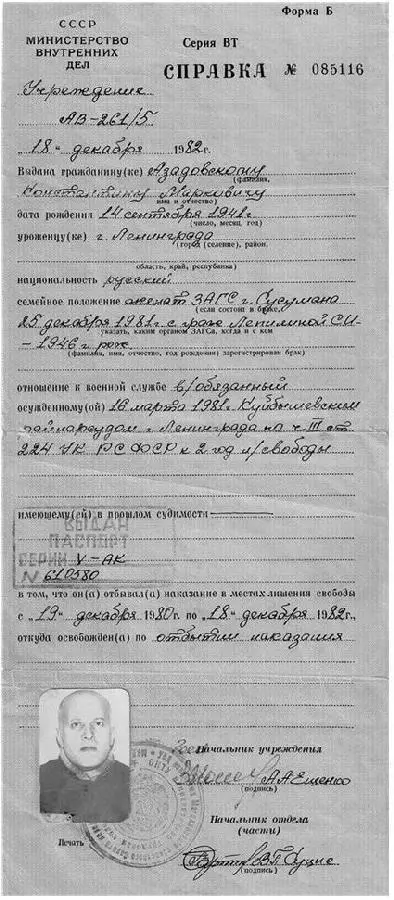 Форма Б
СССР
МИНИСТЕРСТВО
ВНУТРЕННИХ
ДЕЛ
Серия ВТ
СПРАВКА № 085116
Учреждение
АВ-261/5
"18" декабря 1982 г.
Выдана гражданину(ке) Азадовскому
(фамилия,
Константину Марковичу
имя и отчество)
дата рождения 14 сентября 1941 г.
(число, месяц, год)
уроженцу(ке) г. Ленинграда
(город (селение), район,
область, край, республика)
национальность русский
семейное положение женат ЗАГС г. Сусумана
(если состоит в браке,
25 декабря 1981 г с граж Лепилиной С.И-
указать, каким органом ЗАГСа, когда и с кем
- 1946 г рож.
(фамилия, имя, отчество, год рождения) зарегистрирован брак)
отношение к военной службе в/обязанный
осужденному(ой) 16 марта 1981 г. Куйбышевским
райнарсудом г. Ленинграда по ч. III ст
224 УК РСФСР к 2 год л/свободы
имеющему(ей) в прошлом судимости
ВЫДАН
ПАСПОРТ
СЕРИИ V-АК
№ 610580
в том, что он(а) отбывал(а) наказание в местах лишения свободы
с "19" декабря 1980 г. по "18" декабря 1982 г.,
откуда освобожден(а) по отбытии наказания
Начальник учреждения
А А Ещенко
(подпись)
Начальник отдела
(части)
Печать
(подпись)